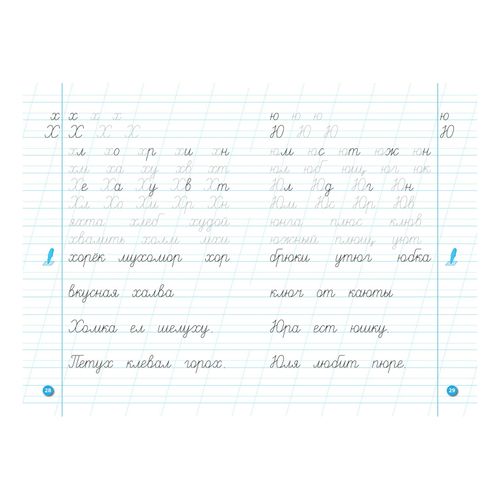 х х х х
Х Х Х Х Х
хл хо хр хи хн
хм ха ху хв хт
Хе Ха Ху Хв Хт
Хл Хо Хи Хр Хн
яхта хлеб худой
хвалить холм мхи
хорёк мухомор хор
вкусная халва
Хомка ел шелуху.
Петух клевал горох.
28
ю ю ю ю
Ю Ю Ю Ю
юм юс ют юж юн
юл юб ющ юч юк
Юл Юд Юг Юн
Юм Юс Юр Юв
юнга плюс клюв
южный плющ уют
брюки утюг юбка
ключ от каюты
Юра ест юшку.
Юля любит пюре.
29